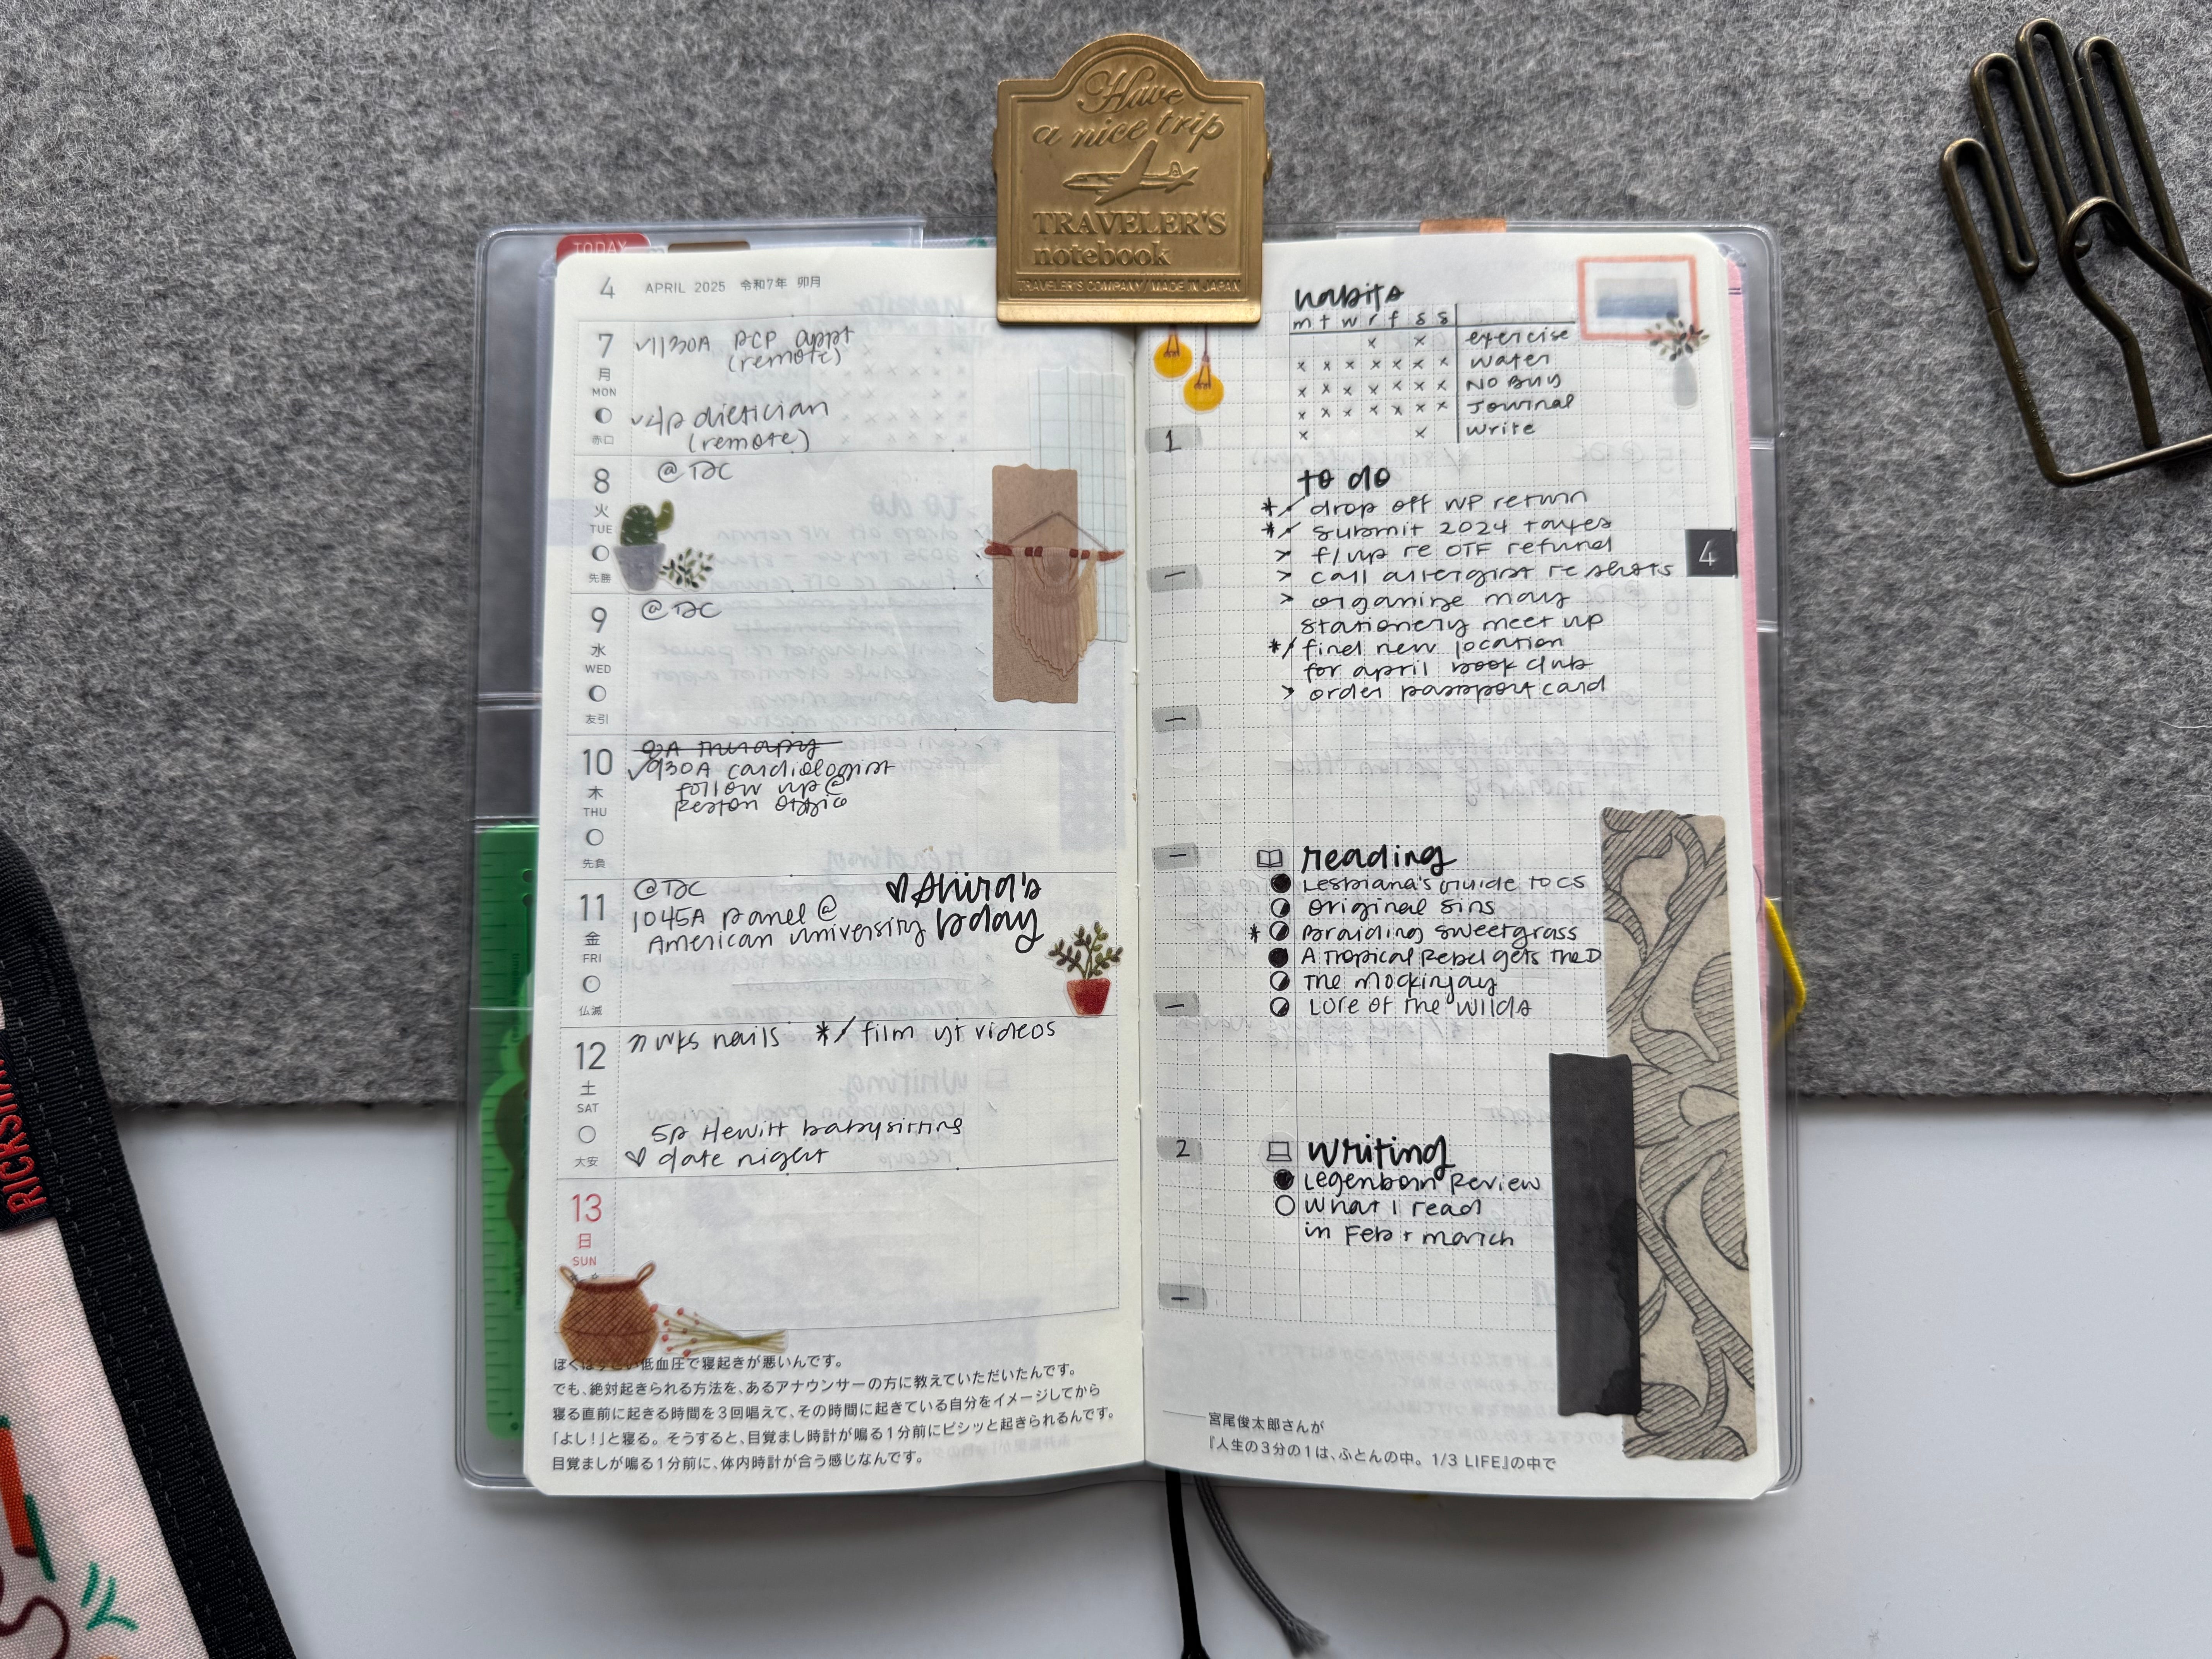 Have
a nice trip
TRAVELER'S
notebook
TRAVELER'S COMPANY / MADE IN JAPAN
TODAY
4 APRIL 2025 令和7年 卯月
7 月 MON 赤口
✓1130A PCP appt
(remote)
✓4p dietician
(remote)
8 火 TUE 先勝
9 水 WED 友引
10 木 THU 先負
9A therapy
✓930A cardiologist
follow up @
Reston office
11 金 FRI 仏滅
1045A panel @
American University
♡ Shira's
bday
12 土 SAT 大安
nails */ film yt videos
5p Hewitt babysitting
♡ date night
13 日 SUN
低血圧で寝起きが悪いんです。
でも、絶対起きられる方法を、あるアナウンサーの方に教えていただいたんです。
寝る直前に起きる時間を3回唱えて、その時間に起きている自分をイメージしてから
「よし!」と寝る。そうすると、目覚まし時計が鳴る1分前にピシッと起きられるんです。
目覚ましが鳴る1分前に、体内時計が合う感じなんです。
habits
m t w r f s s
x x exercise
x x x x x x x water
x x x x x x x NO BUY
x x x x x x x Journal
x x write
1
to do
*/ drop off WP return
*/ submit 2024 taxes
> f/up re OTF refund
> call allergist re shots
> organize may
stationery meet up
*/ find new location
for april book club
> order passport card
4
reading
Lesbiana's Guide to CS
Original Sins
* Braiding Sweetgrass
A Tropical Rebel gets the D
The Mockinjay
Lore of the Wilds
2
writing
Legenborn Review
What I read
in Feb + march
宮尾俊太郎さんが
『人生の3分の1は、ふとんの中。1/3 LIFE』の中で